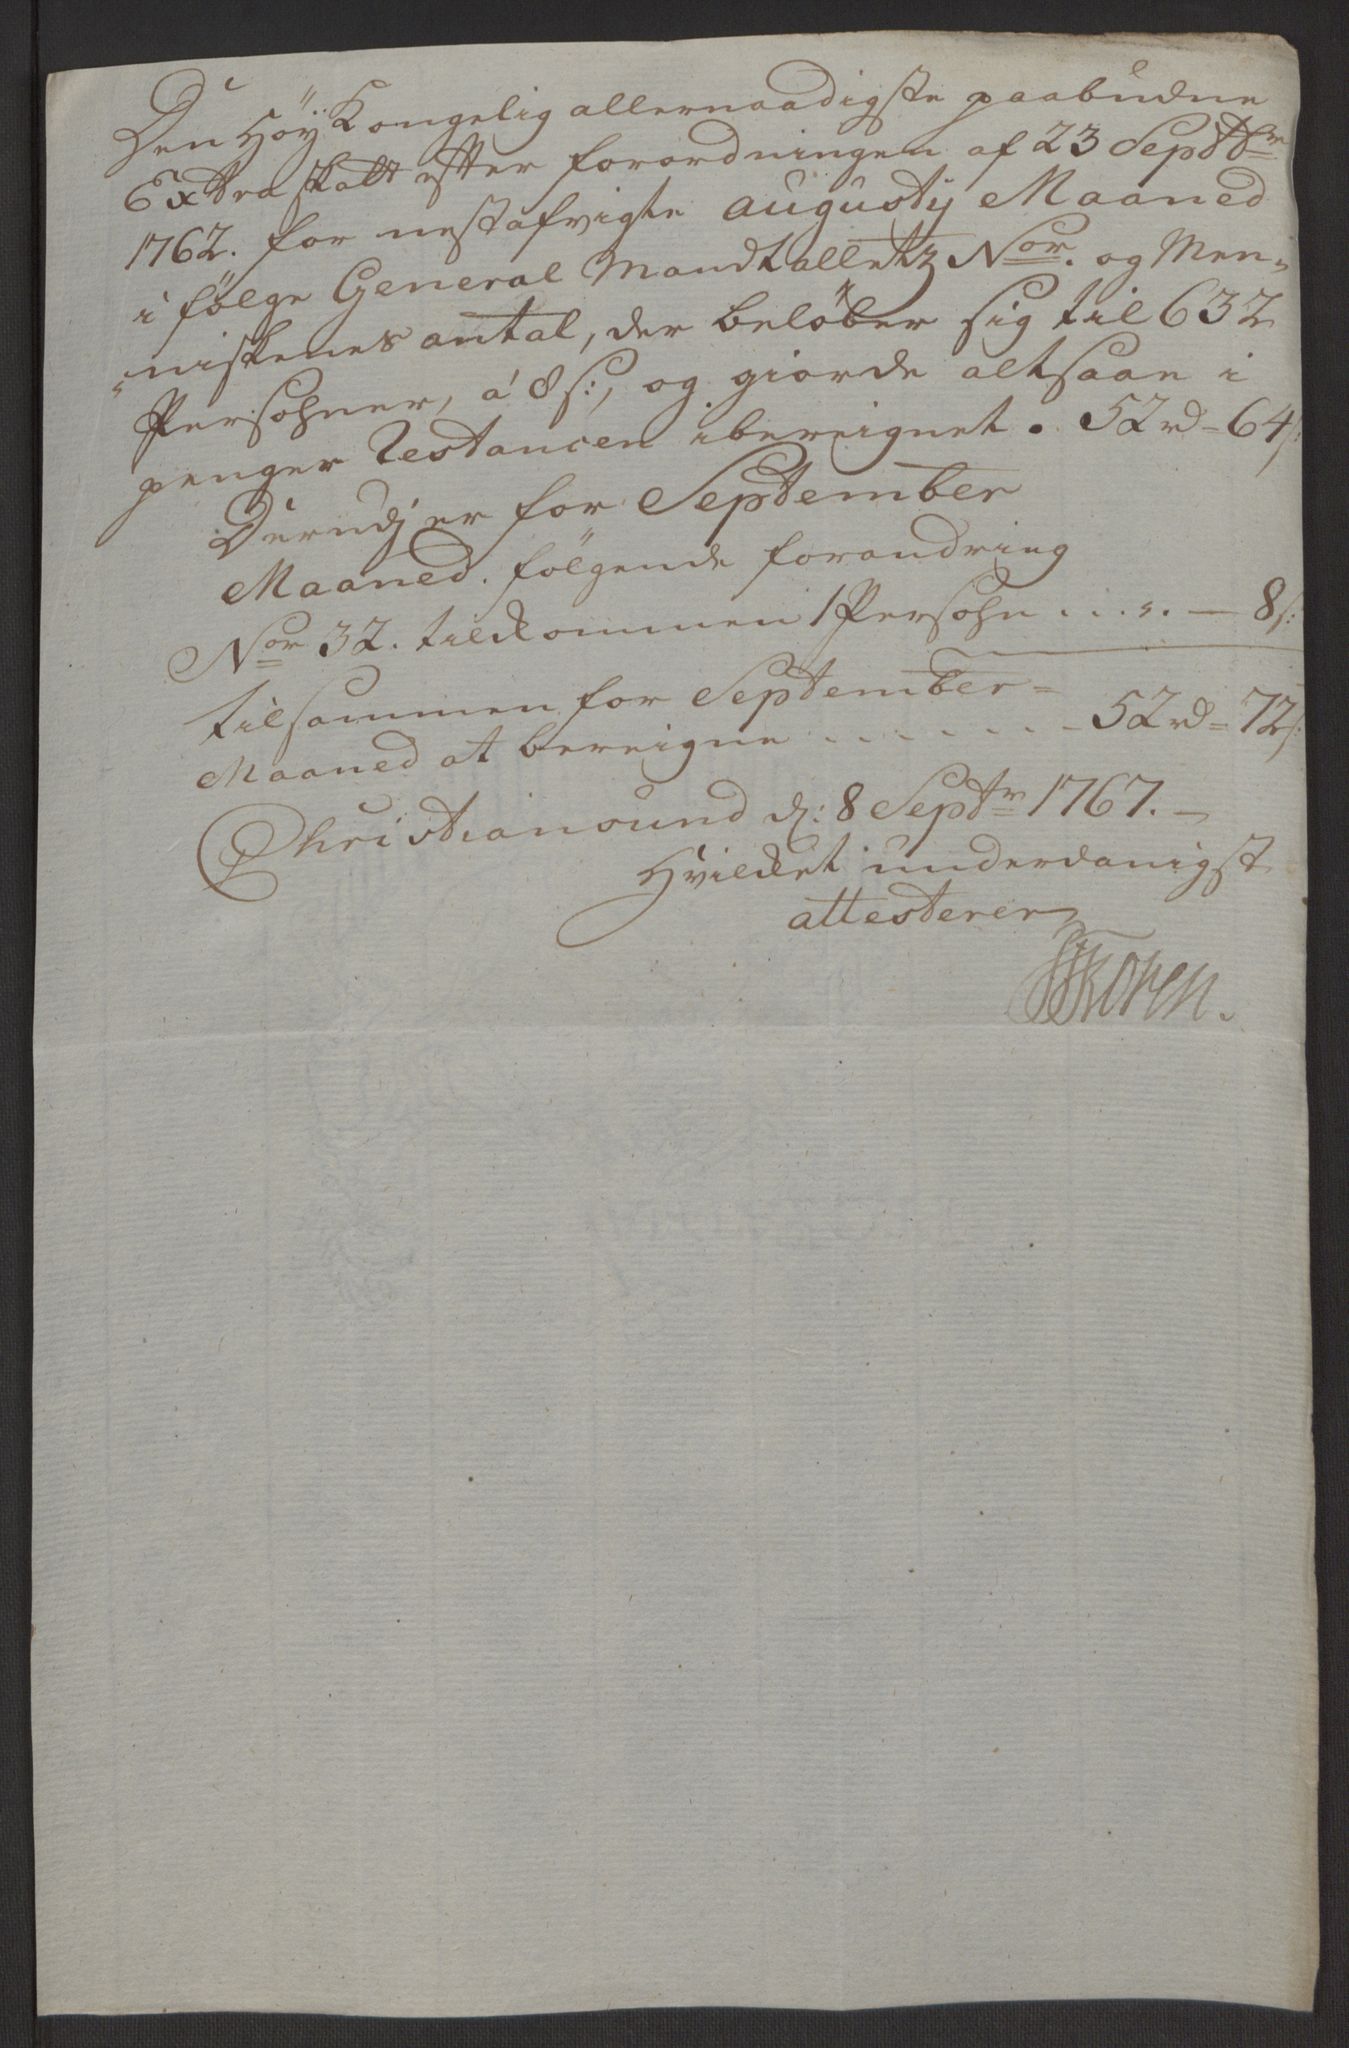 Den Höÿ Kongelig allernaadigste paabudne
Extra skatt efter forordningen af 23 Septbr
1762. for nestafvigte Augusty Maaned
i følge General Mandtalletz Nor. og Men„
„niskenes antal, der beløber sig til 632
Persohner, á 8 s:, og giorde altsaae i
penger Restancen ibereignet. 52 rd = 64 s:
Dernæst er for September
Maaned. følgende forandring
Nor 32. tilkommen 1 Persohn .... — 8 s:
tilsammen for September =
Maaned at bereigne ....... 52 rd = 72 s:
Christiansund d: 8 Septr 1767. —
Hvilket underdanigst
attesterer
Koren.